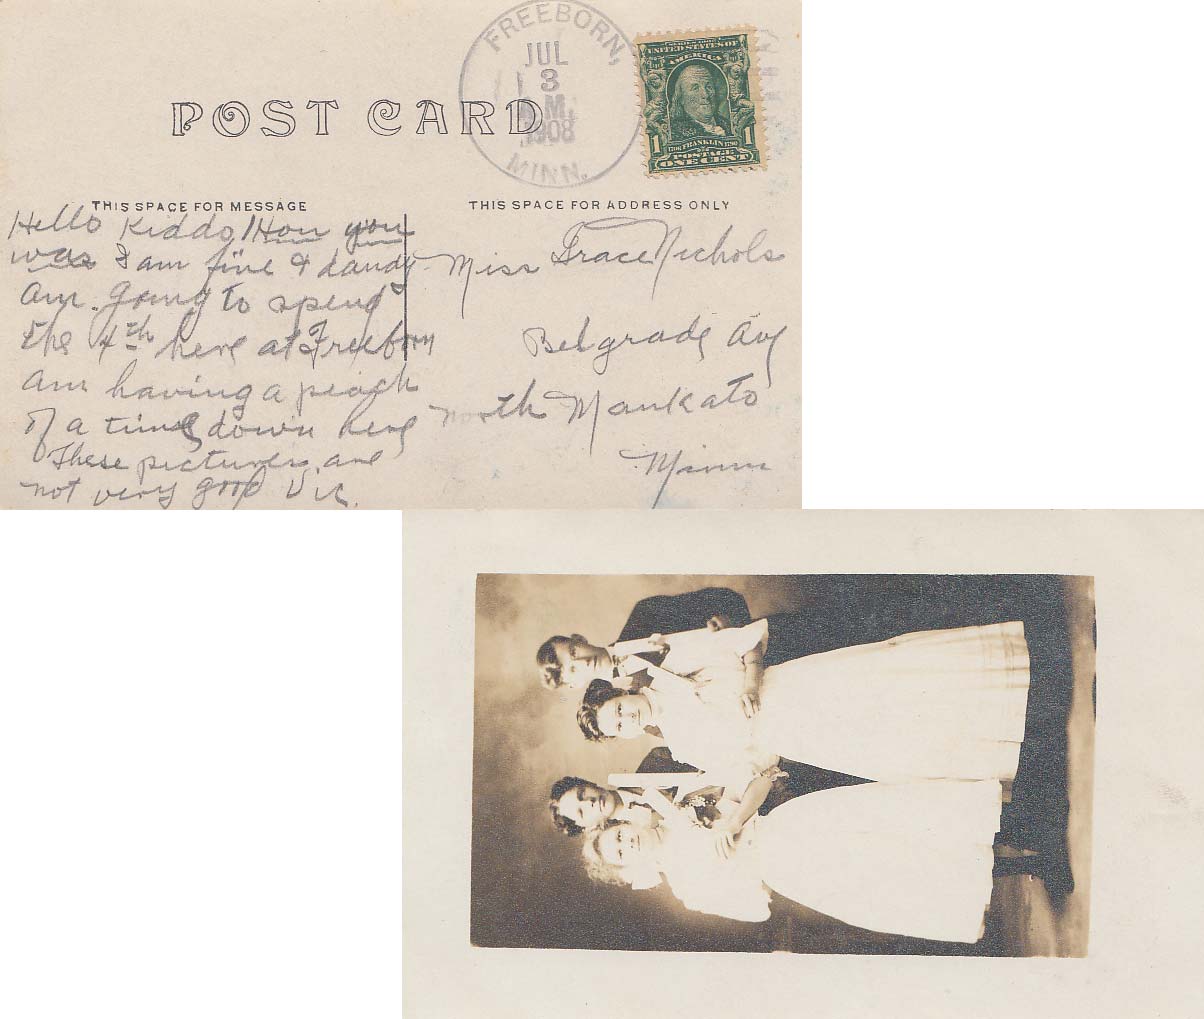 FREEBORN,
JUL
3
M.
1908
MINN.
SERIES 1902
UNITED STATES OF
AMERICA
1 1
1706 FRANKLIN 1790
POSTAGE
ONE CENT
POST CARD
THIS SPACE FOR MESSAGE
THIS SPACE FOR ADDRESS ONLY
Hello Kiddo! How you
was I am fine & dandy
am going to spend
the 4th here at Freeborn
am having a peach
of a time down here
These pictures are
not very good Vic.
Miss Grace Nichols
Belgrade Ave
North Mankato
Minn